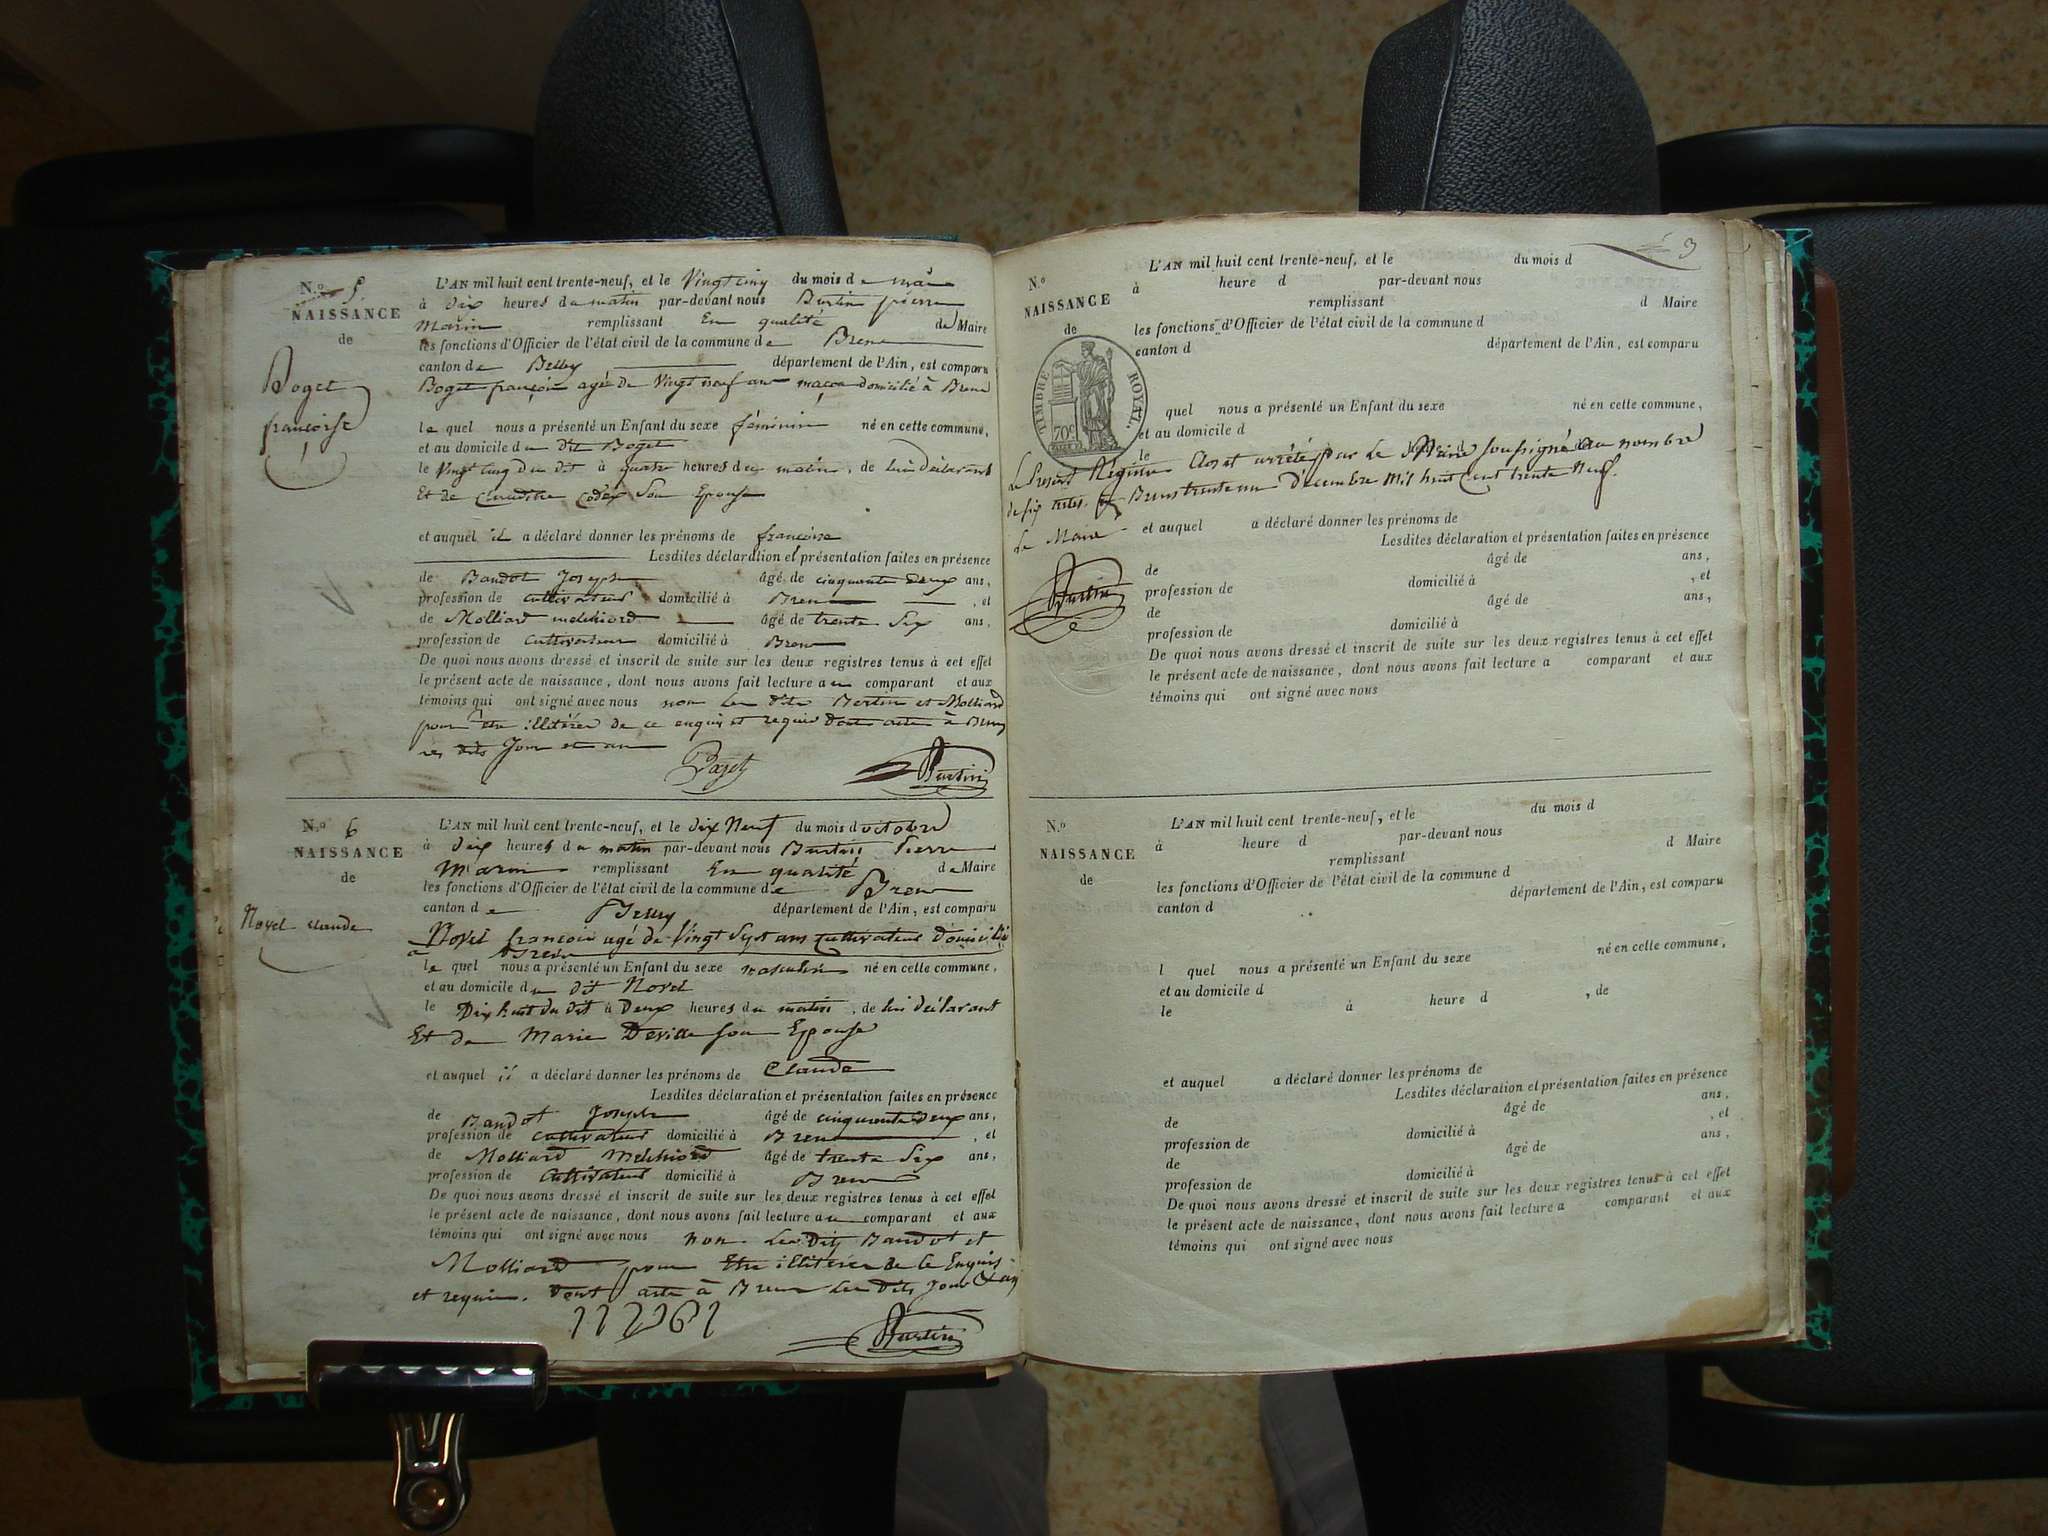 N.º 5.
NAISSANCE
de
Boget
françoise
L'AN mil huit cent trente-neuf, et le Vingt cinq du mois de mai
à dix heures du matin par-devant nous Burtin pierre
Marin remplissant En qualité de Maire
les fonctions d'Officier de l'état civil de la commune de Bren
canton de Belley département de l'Ain, est comparu
Boget françois agé de Vingt neuf ans maçon domicilié à Bren
le quel nous a présenté un Enfant du sexe féminin né en cette commune,
et au domicile du dit Boget
le Vingt cinq du dit à quatre heures du matin, de lui déclarant
Et de Claudine Son Epouse
et auquel il a déclaré donner les prénoms de françoise
Lesdites déclaration et présentation faites en présence
de Bandot Joseph âgé de cinquante deux ans,
profession de cultivateur domicilié à Bren, et
de Molliard melchiord âgé de trente Six ans,
profession de cultivateur domicilié à Bren
De quoi nous avons dressé et inscrit de suite sur les deux registres tenus à cet effet
le présent acte de naissance, dont nous avons fait lecture au comparant et aux
témoins qui ont signé avec nous non les dits et Molliard
pour être illitérés de ce enquis et requis dont acte à Bren
les dits Jour et an
Boget Burtin
N.º 6
NAISSANCE
de
Noyel claude
L'AN mil huit cent trente-neuf, et le dix Neuf du mois d'octobre
à dix heures du matin par-devant nous Burtin Pierre
Marin remplissant En qualité de Maire
les fonctions d'Officier de l'état civil de la commune de Bren
canton de Belley département de l'Ain, est comparu
Noyel françois agé de Vingt Sept ans Cultivateur Domicilié
à Bren
le quel nous a présenté un Enfant du sexe masculin né en cette commune,
et au domicile du dit Noyel
le Dix huit du dit à Deux heures du matin, de lui déclarant
Et de Marie Deville Son Epouse
et auquel il a déclaré donner les prénoms de Claude
Lesdites déclaration et présentation faites en présence
de Bandot Joseph âgé de cinquante deux ans,
profession de cultivateur domicilié à Bren, et
de Molliard Melchiord âgé de trente Six ans,
profession de Cultivateur domicilié à Bren
De quoi nous avons dressé et inscrit de suite sur les deux registres tenus à cet effet
le présent acte de naissance, dont nous avons fait lecture au comparant et aux
témoins qui ont signé avec nous non Les Dits Bandot et
Molliard pour Etre illitérés de Ce Enquis
et requis. Dont acte à Bren Les Dits Jour & an
Burtin
3
N.º
NAISSANCE
de
TIMBRE ROYAL.
70c
L'AN mil huit cent trente-neuf, et le du mois d
à heure d par-devant nous
remplissant d Maire
les fonctions d'Officier de l'état civil de la commune d
canton d département de l'Ain, est comparu
quel nous a présenté un Enfant du sexe né en cette commune,
et au domicile d
le
Le Present Régistre Clos et arrêté par Le Maire Soussigné au nombre
de six actes. à Bren trente un Décembre Mil huit Cent trente Neuf.
Le Maire
Burtin
et auquel a déclaré donner les prénoms de
Lesdites déclaration et présentation faites en présence
de âgé de ans,
profession de domicilié à , et
de âgé de ans,
profession de domicilié à
De quoi nous avons dressé et inscrit de suite sur les deux registres tenus à cet effet
le présent acte de naissance, dont nous avons fait lecture a comparant et aux
témoins qui ont signé avec nous
N.º
NAISSANCE
de
L'AN mil huit cent trente-neuf, et le du mois d
à heure d par-devant nous
remplissant d Maire
les fonctions d'Officier de l'état civil de la commune d
canton d département de l'Ain, est comparu
l quel nous a présenté un Enfant du sexe né en cette commune,
et au domicile d
le à heure d , de
et auquel a déclaré donner les prénoms de
Lesdites déclaration et présentation faites en présence
de âgé de ans,
profession de domicilié à , et
de âgé de ans,
profession de domicilié à
De quoi nous avons dressé et inscrit de suite sur les deux registres tenus à cet effet
le présent acte de naissance, dont nous avons fait lecture a comparant et aux
témoins qui ont signé avec nous